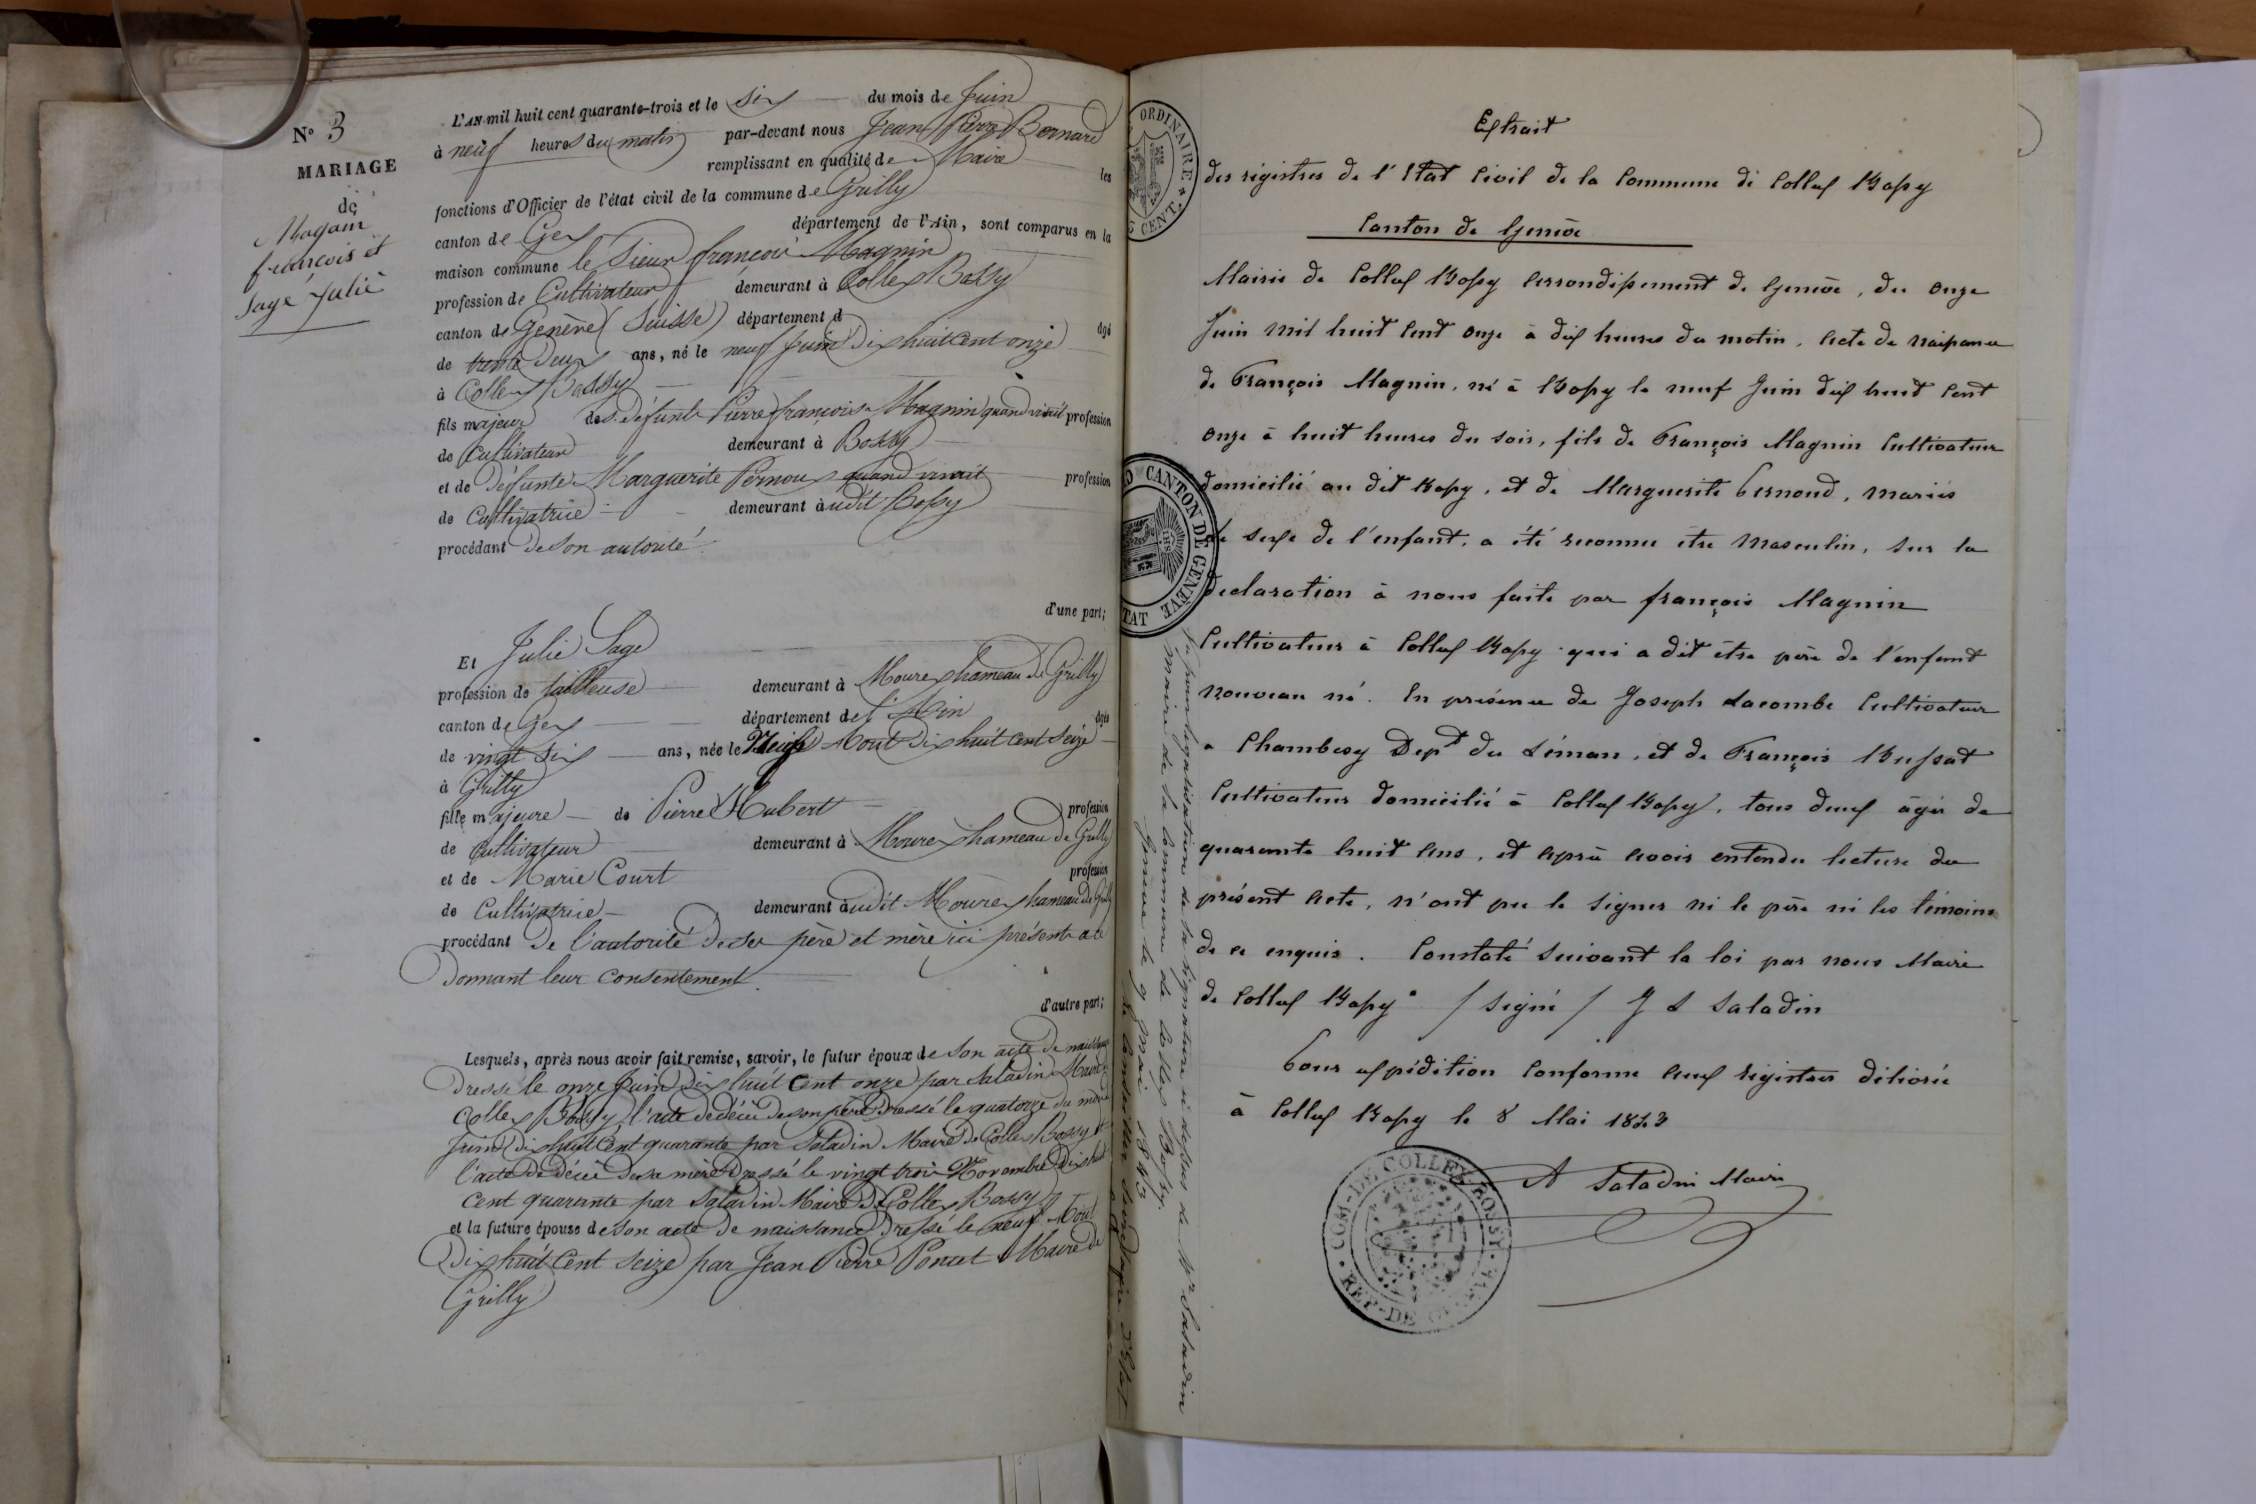 N° 3
MARIAGE
de
Magnin
françois et
Sage Julie
L'AN mil huit cent quarante-trois et le six du mois de Juin
à neuf heures du matin par-devant nous Jean Pierre Bernard
remplissant en qualité de Maire les
fonctions d'Officier de l'état civil de la commune de Grilly
canton de Gex département de l'Ain, sont comparus en la
maison commune le Sieur françois Magnin
profession de Cultivateur demeurant à Collex Bossy
canton de Genève (Suisse) département d âgé
de trente deux ans, né le neuf Juin dix huit cent onze
à Collex Bossy
fils majeur de défunt Pierre françois Magnin quand vivait profession
de Cultivateur demeurant à Bossy
et de défunte Marguerite Pernoux quand vivait profession
de Cultivatrice demeurant audit Bossy
procédant de son autorité
d'une part;
Et Julie Sage
profession de tailleuse demeurant à Mourex hameau de Grilly
canton de Gex département de l'Ain âgée
de vingt six ans, née le neuf Aout dix huit cent seize
à Grilly
fille majeure de Pierre Hubert profession
de Cultivateur demeurant à Mourex hameau de Grilly
et de Marie Court profession
de Cultivatrice demeurant audit Mourex hameau de Grilly
procédant de l'autorité de ses père et mère ici présents et
donnant leur consentement
d'autre part;
Lesquels, après nous avoir fait remise, savoir, le futur époux de son acte de naissance
dressé le onze Juin dix huit cent onze par Saladin Maire
Collex Bossy, l'acte de décès de son père dressé le quatorze du mois
Juin dix huit cent quarante par Saladin Maire de Collex Bossy et
l'acte de décès de sa mère dressé le vingt trois Novembre dix huit
cent quarante par Saladin Maire de Collex Bossy
et la future épouse de son acte de naissance dressé le neuf Aout
dix huit cent seize par Jean Pierre Poncet Maire de
Grilly
ORDINAIRE
CENT.
CANTON DE GENÈVE
Vu pour légalisation de la signature ci dessus de Mr Saladin
maire de la commune de Collex Bossy.
Genève le 9 mai 1843
Extrait
des régistres de l'Etat Civil de la Commune de Collex Bossy
Canton de Genève
Mairie de Collex Bossy Arrondissement de Genève, du onze
Juin mil huit cent onze à dix heures du matin, Acte de naissance
de François Magnin, né à Bossy le neuf Juin dix huit Cent
onze à huit heures du soir, fils de François Magnin Cultivateur
domicilié au dit Bossy, et de Marguerite Pernoud, mariés
Le sexe de l'enfant, a été reconnu être masculin, sur la
declaration à nous faite par françois Magnin
Cultivateur à Collex Bossy qui a dit être père de l'enfant
nouveau né. En présence de Joseph Lacombe Cultivateur
a Chambesy Dept du Léman, et de François Bussat
Cultivateur domicilié à Collex Bossy, tous deux âgés de
quarante huit Ans, et après avoir entendu lecture du
présent Acte, n'ont pu le signer ni le père ni les témoins
de ce enquis. Constaté suivant la loi par nous Maire
de Collex Bossy / signé / J L Saladin
Pour expédition Conforme aux régistres délivrée
à Collex Bossy le 8 Mai 1843
A Saladin Maire
COM-DE COLLEX BOSSY
REP-DE